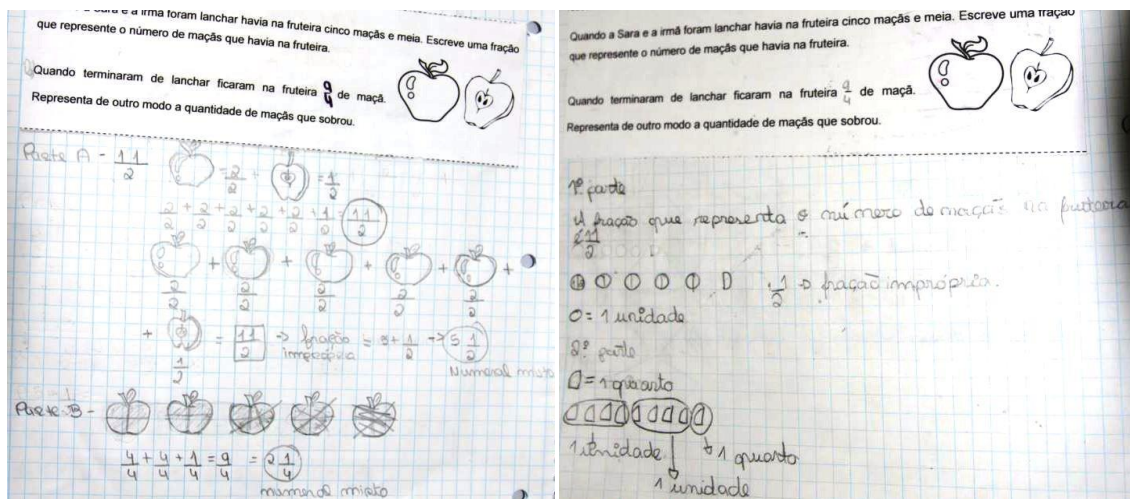 Sara e a irmã foram lanchar havia na fruteira cinco maçãs e meia. Escreve uma fração
que represente o número de maçãs que havia na fruteira.
Quando terminaram de lanchar ficaram na fruteira 9/4 de maçã.
Representa de outro modo a quantidade de maçãs que sobrou.
Parte A - 11/2 = 2/2 + = 1/2
2/2 + 2/2 + 2/2 + 2/2 + 2/2 + 1/2 = 11/2
+ + + + +
2/2 2/2 2/2 2/2 2/2
+ 1/2 = 11/2 → fração imprópria = 5 + 1/2 → 5 1/2
Numeral misto
Parte B -
4/4 + 4/4 + 1/4 = 9/4 = 2 1/4
numeral misto
Quando a Sara e a irmã foram lanchar havia na fruteira cinco maçãs e meia. Escreve uma fração
que represente o número de maçãs que havia na fruteira.
Quando terminaram de lanchar ficaram na fruteira 9/4 de maçã.
Representa de outro modo a quantidade de maçãs que sobrou.
1ª parte
A fração que representa o número de maçãs na fruteira
é 11/2
1/2 → fração imprópria.
O = 1 unidade
2ª parte
= 1 quarto
1 unidade → 1 quarto
1 unidade